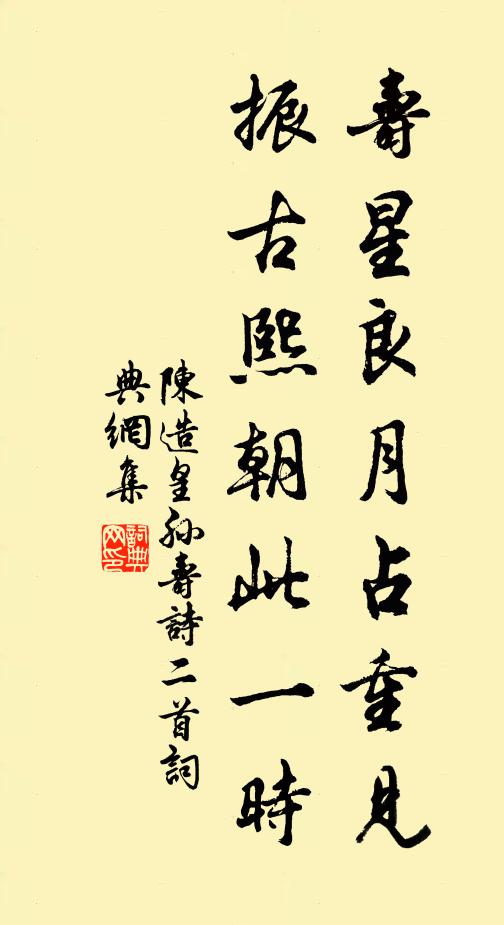 壽星良月占重見
振古熙朝此一時
陳造皇孙壽詩二首詞
典網集
詞典网印